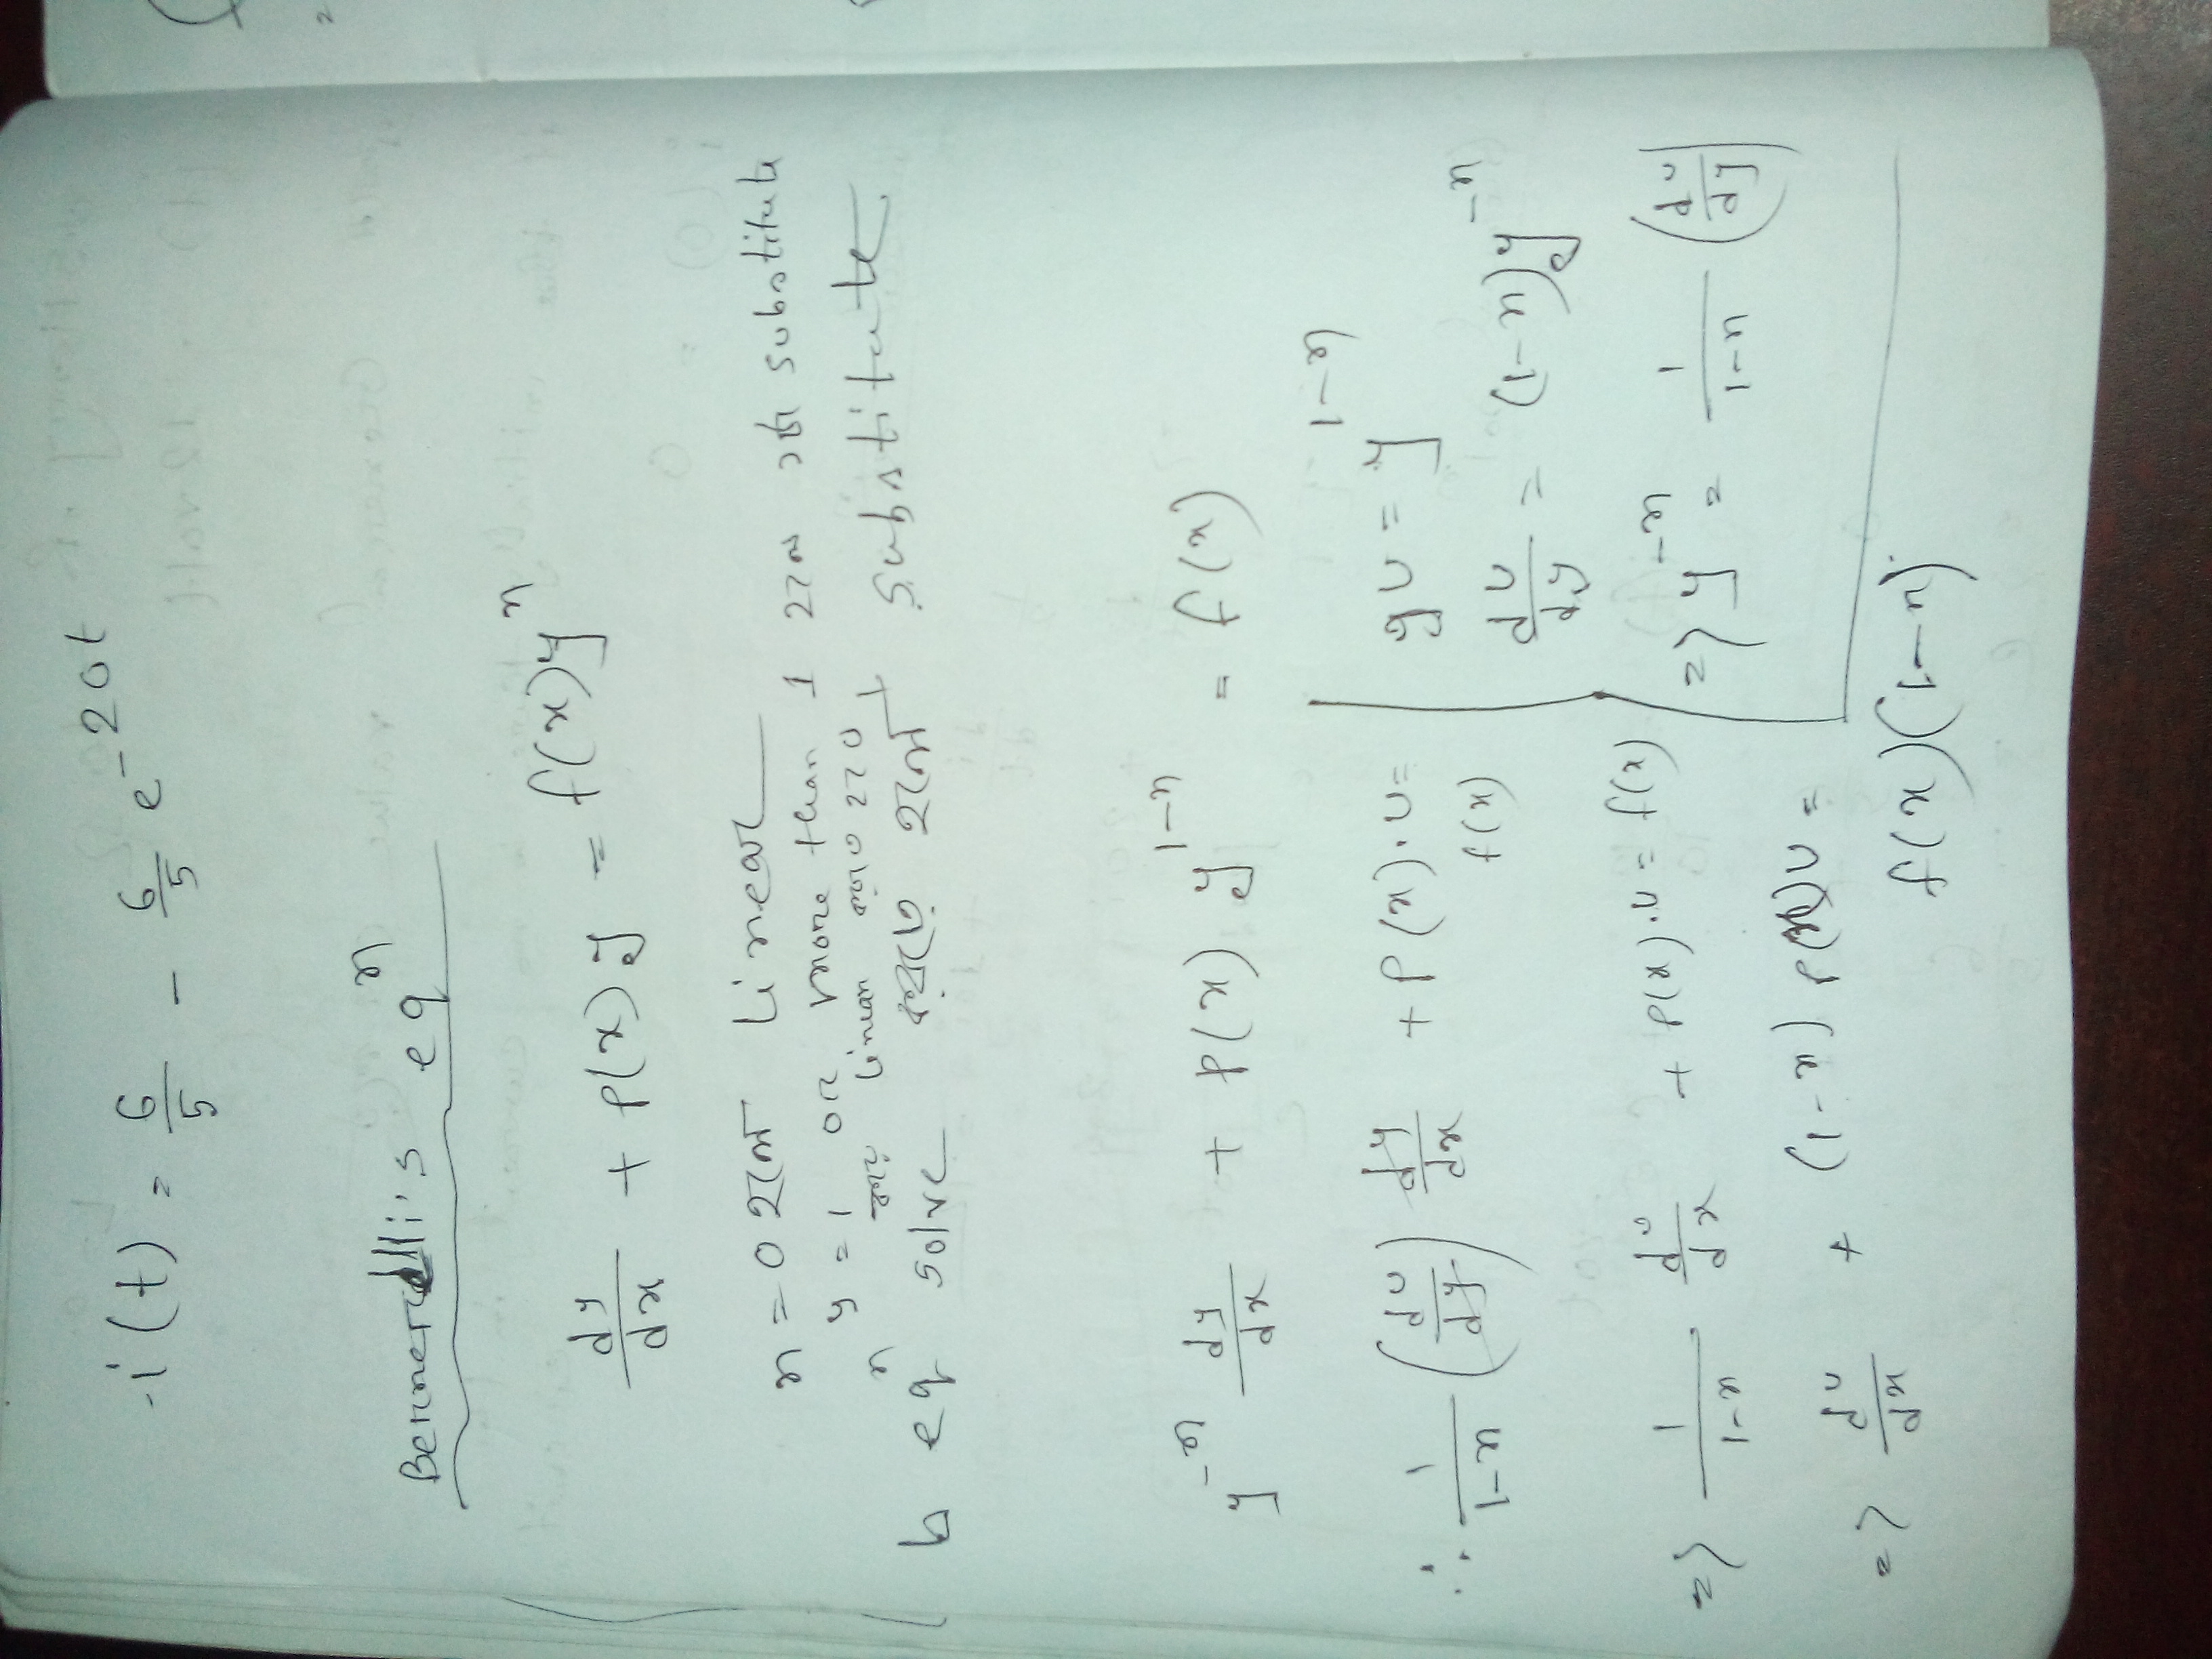 i(t) = 6/5 - 6/5 e^-20t
Bernoulli's eq^n
dy/dx + P(x)y = f(x)y^n
n = 0 হলে Linear
y = 1 or more than 1 হলে substitute
eq^n linear হবে
solve করতে হলে substitute
y^-n dy/dx + P(x) y^1-n = f(x)
∴ 1/1-n (dv/dy) dy/dx + P(x).v = f(x)
v = y^1-n
dv/dy = (1-n)y^-n
=> y^-n = 1/1-n (dv/dy)
=> 1/1-n dv/dx + P(x).v = f(x)
=> dv/dx + (1-n) P(x)v =
f(x)(1-n)